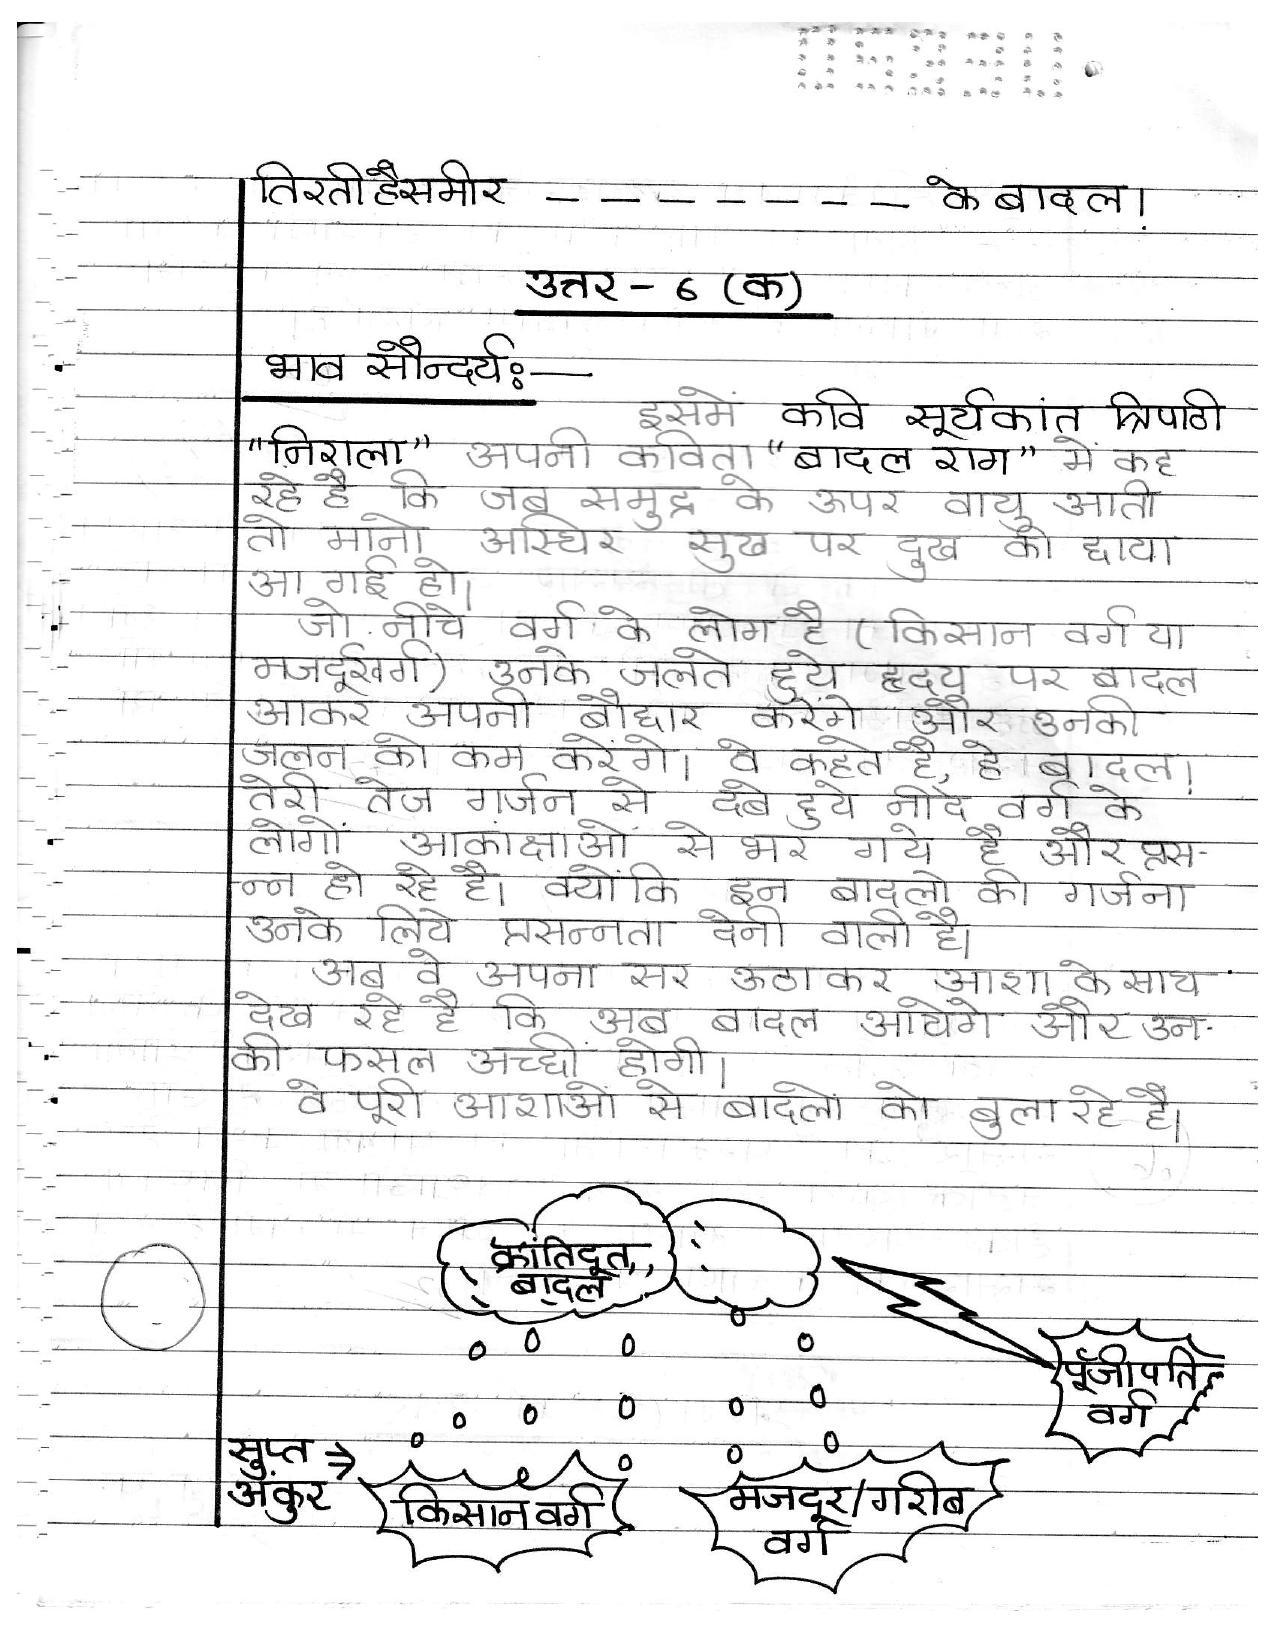 तिरती है समीर - - - - - - - के बादल।
उत्तर - 6 (क)
भाव सौन्दर्य :—
इसमें कवि सूर्यकांत त्रिपाठी
"निराला" अपनी कविता "बादल राग" में कह
रहे है कि जब समुद्र के ऊपर वायु आती
तो मानो अस्थिर सुख पर दुख की छाया
आ गई हो।
जो नीचे वर्ग के लोग है (किसान वर्ग या
मजदूर वर्ग) उनके जलते हुये हृदय पर बादल
आकर अपनी बौछार करेंगे और उनकी
जलन को कम करेंगे। वे कहते है, हे बादल!
तेरी तेज गर्जन से दबे हुये नीदे वर्ग के
लोगों आकांक्षाओं से भर गये है और प्रस-
न्न हो रहे है। क्योंकि इन बादलो की गर्जना
उनके लिये प्रसन्नता देनी वाली है।
अब वे अपना सर ऊठाकर आशा के साथ
देख रहे है कि अब बादल आयेगे और उन-
की फसल अच्छी होगी।
वे पूरी आशाओं से बादलो को बुला रहे है।
क्रांतिदूत,,
बादल
पूँजीपति
वर्ग
सुप्त →
अंकुर
किसान वर्ग
मजदूर/गरीब
वर्ग